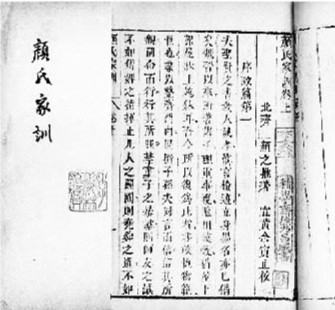 顏氏家訓
顏氏家訓卷上
北齊 顏之推
序致篇第一
夫聖賢之書教人誠孝慎言檢迹立身揚名亦已備
矣魏晉以來所著諸子理重事複遞相模斆猶屋下
架屋牀上施牀耳吾今所以復爲此者非敢軌物範
世也業以整齊門內提撕子孫夫同言而信信其所
親同命而行行其所服禁童子之暴謔則師友之誡
不如傅婢之指揮止凡人之鬭鬩則堯舜之道不如